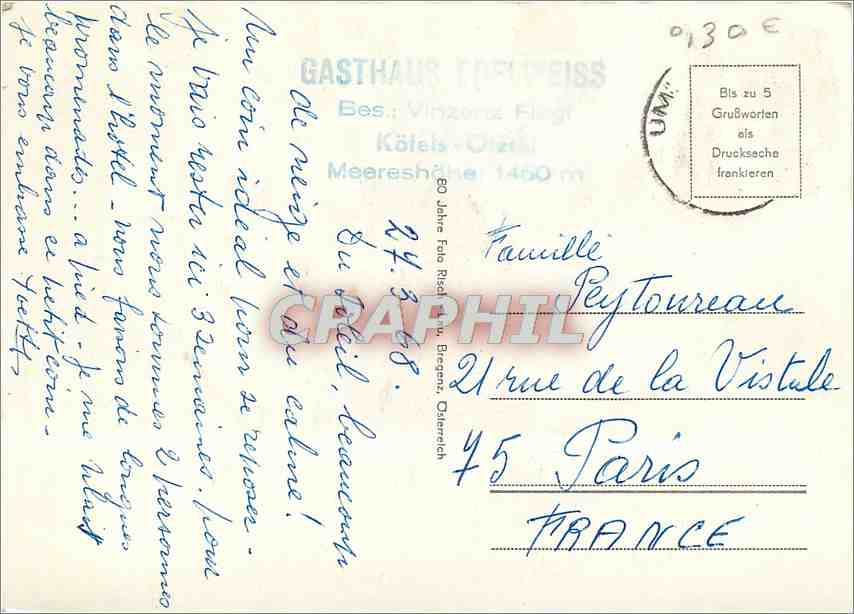 0,30 €
GASTHAUS EDELWEISS
Bes.: Vinzenz
Köfels - Ötztal
Meereshöhe 1450 m
UM
Bis zu 5
Grußworten
als
Drucksache
frankieren
27.3.68.
Du soleil, beaucoup
de neige et du calme!
Un coin idéal pour se reposer.
Je vais rester ici 3 semaines. pour
le moment nous sommes 2 personnes
dans l'hôtel - nous faisons de longues
promenades... a pied - je me plait
beaucoup dans ce petit coin.
Je vous embrasse
80 Jahre Foto Risch-Lau, Bregenz, Österreich
Famille
Peytoureau
21 rue de la Vistule
75 Paris
FRANCE
CRAPHIL